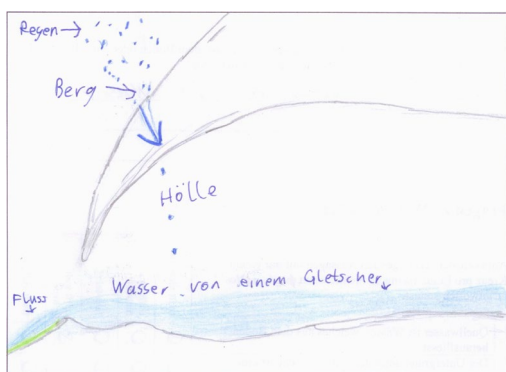 Regen
Berg
Hölle
Wasser von einem Gletscher
Fluss